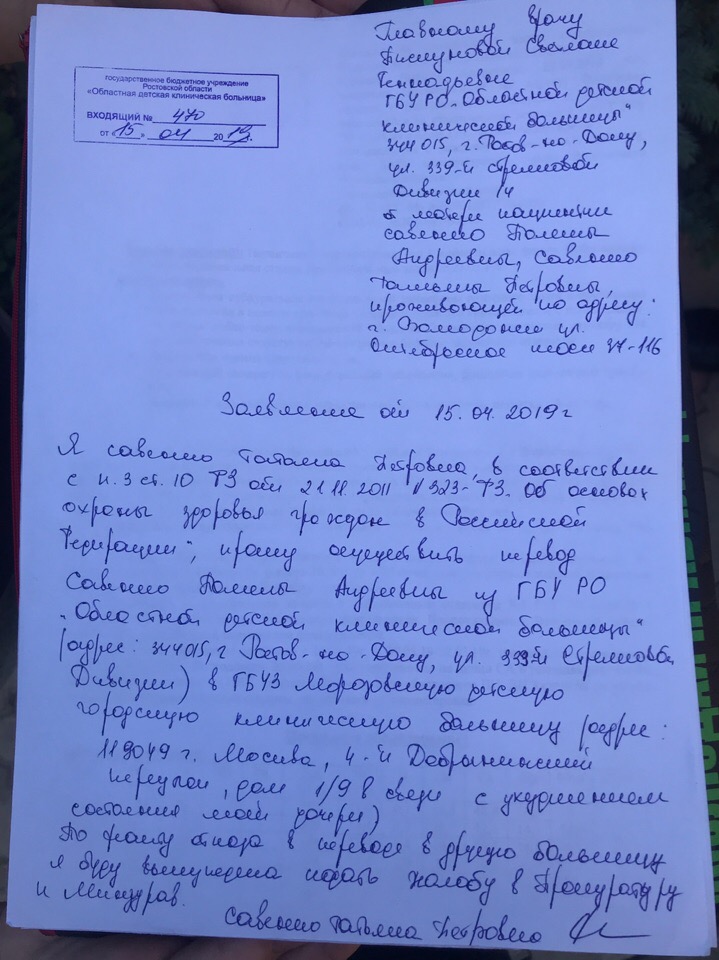 государственное бюджетное учреждение
Ростовской области
«Областная детская клиническая больница»
ВХОДЯЩИЙ № 470
от «15» 04 2019г.
Главному врачу
Пискуновой Светлане
Геннадьевне
ГБУ РО „Областной детской
клинической больницы"
344015, г. Ростов-но-Дону,
ул. 339-й стрелковой
Дивизии 14
от матери пациентки
Савенко Полины
Андреевны, Савенко
Татьяны Петровны,
проживающей по адресу:
г. Волгодонск ул.
Октябрьское шоссе 37-116
Заявление от 15.04.2019г
Я Савенко Татьяна Петровна, в соответствии
с п. 3 ст. 10 ФЗ от 21.11.2011 N 323-ФЗ „Об основах
охраны здоровья граждан в Российской
Федерации", прошу осуществить перевод
Савенко Полины Андреевны из ГБУ РО
„Областной детской клинической больницы"
(адрес: 344015, г Ростов-но-Дону, ул. 339-й Стрелковой
Дивизии) в ГБУЗ Морозовскую детскую
городскую клиническую больницу (адрес:
119049 г. Москва, 4-й Добрынинский
переулок, дом 1/9 в связи с ухудшением
состояния моей дочери)
По факту отказа в переводе в другую больницу
я буду вынуждена подать жалобу в Прокуратуру
и Минздрав.
Савенко Татьяна Петровна